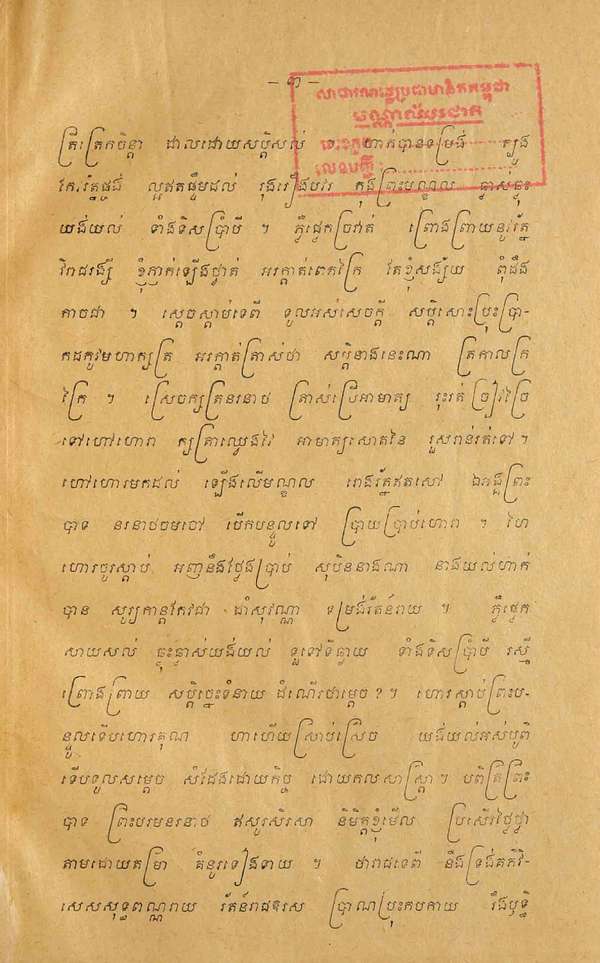 — ៣ —
សាធារណរដ្ឋប្រជាមានិតកម្ពុជា
បណ្ណាល័យជាតិ
លេខបញ្ជី
ត្រិះត្រេកចិន្តា ដាលដោយសប្តិសល់ ហាក់បានទម្រង់ ក្បួង
កែវរ័ត្នផ្ចង់ ល្អឥតផ្ទឹមដល់ រុងរឿងបវរ ក្នុងព្រះមណ្ឌល ធ្លាស់ឆ្លុះ
យង់យល់ ទាំងទិសប្រាំបី ។ ភ្លឺផ្លេកច្រវាត់ ព្រោងព្រាយនូវរ័ត្ន
វិរាជរង្សី ខ្ញុំភ្ញាក់ឡើងថ្វាត់ អរក្តាត់ពេកក្រៃ តែខ្ញុំសង្ស័យ ពុំដឹង
កាចជា ។ ស្តេចស្តាប់ទេពី ទូលអស់សេចក្តី សប្តិសោះប្រុះប្រា-
កដក្នុវមហាក្សត្រ អរក្តាត់ត្រាស់ថា សប្តិនាងនេះណា ត្រកាលក្រ
ក្រៃ ។ ស្រេចក្សត្រនរនាថ ត្រាស់ប្រើអាមាត្យ រុះរត់ ច្រៀវច្រៃ
ទៅហៅហោរា ក្សត្រាឈ្វេងវៃ អាមាត្យសោតនៃ រួសរាន់រត់ទៅ។
ហៅហោរមកដល់ ឡើងលើមណ្ឌល រោងរ័ត្នឥតសៅ ឯអង្គព្រះ
បាទ នរនាថចមចៅ បើកបន្ទូលទៅ ប្រាយប្រាប់ហោរា ។ ហៃ
ហោរចូរស្តាប់ អញនឹងថ្លែងប្រាប់ សុបិននាងណា នាងយល់ហាក់
បាន សូរ្យកាន្តកែវជា ដាំសុវណ្ណា ទម្រង់រ័តន៍រាយ ។ ភ្លឺផ្លេក
សាយសល់ ឆ្លុះឆ្លាស់យង់យល់ ទួទៅទីឆ្ងាយ ទាំងទិសប្រាំបី រស្មី
ព្រោងព្រាយ សប្តិច្នេះទំនាយ ដំណើរថាម្តេច ? ។ ហោរស្តាប់ព្រះប-
ន្ទូលទើបហោរគុណ ហាហើយស្រាប់ស្រេច យង់យល់អស់បូពិ
ទើបទូលសម្តេច សំដែងដោយកិច្ច ដោយកលសាស្ត្រា ។ បពិត្រព្រះ
បាទ ព្រះបរមនរនាថ ឥសូរសិរសា និមិត្តខ្ញុំមើល ប្រសើរថ្លៃថ្លា
តាមដោយតម្រា គំនូរទៀងទាយ ។ ថារាជទេពី នឹងទ្រង់គភ៌វិ-
សេសសុទ្ធពណ្ណរាយ រ័តន៍រាជឱរស ប្រាណប្រុះកបកាយ រឹងឫទ្ធិ